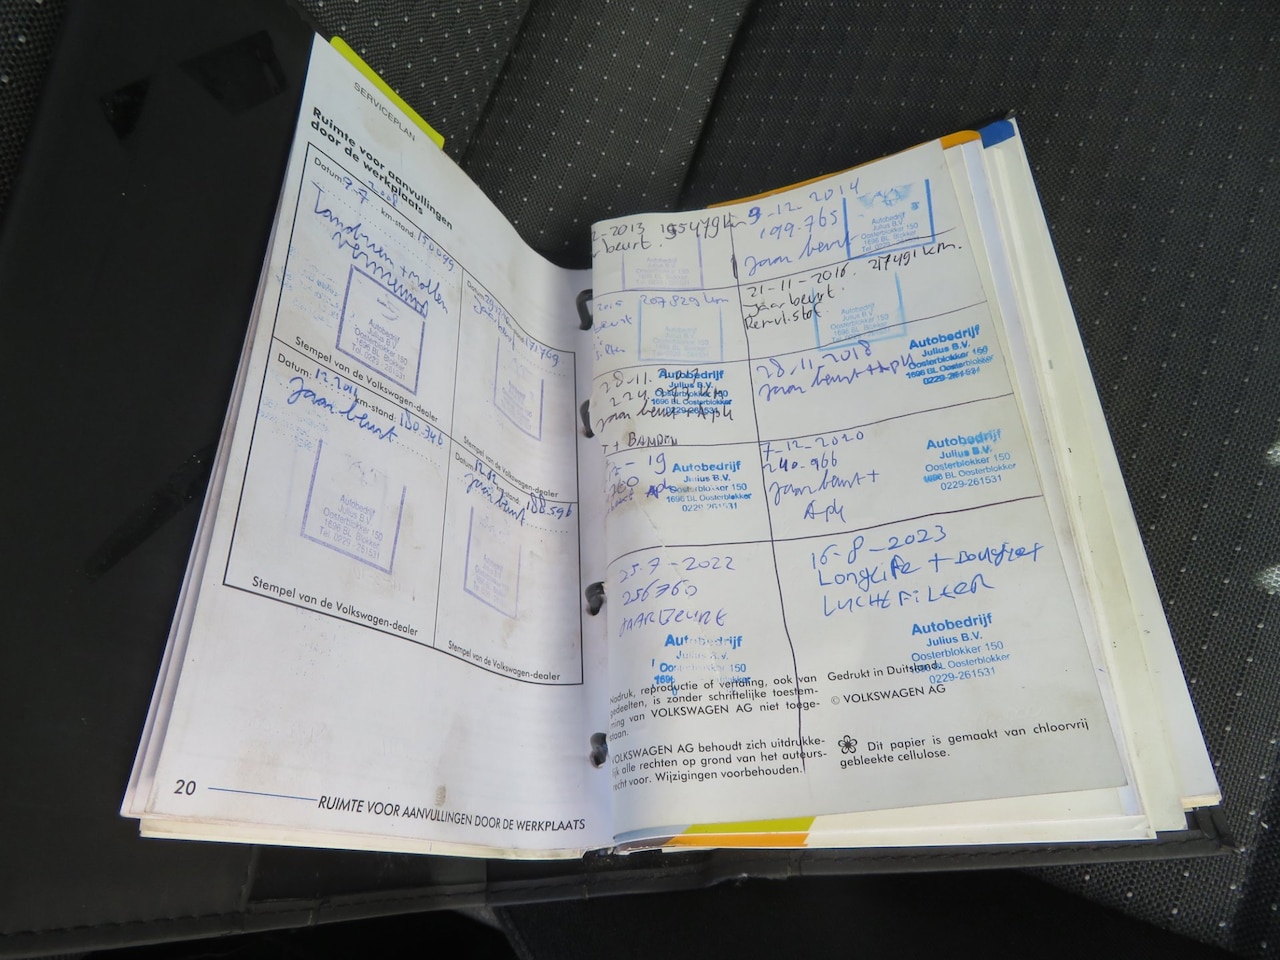 SERVICEPLAN
Ruimte voor aanvullingen
door de werkplaats
Datum: 7-7 2008
km-stand: 150.099
Autobedrijf
Julius B.V.
Oosterblokker 150
1696 BL Blokker
Stempel van de Volkswagen-dealer
Datum:
171769
Jaarbeurt
Stempel van de Volkswagen-dealer
Datum: 12.2011
km-stand: 180.346
Jaarbeurt
Autobedrijf
Julius B.V.
Oosterblokker 150
1696 BL Blokker
Tel. 0229 - 261531
Stempel van de Volkswagen-dealer
Datum: 12.12
km-stand: 188.596
Jaarbeurt
Stempel van de Volkswagen-dealer
20
RUIMTE VOOR AANVULLINGEN DOOR DE WERKPLAATS
2013
beurt.
9-12-2014
199.765
Jaarbeurt
Autobedrijf
Julius B.V.
Oosterblokker 150
1696 BL Blokker
2015 207829 km
beurt
21-11-2016. 217491 km.
Jaarbeurt.
Remvl.stof.
28.11.
Jaarbeurt + Apk
Autobedrijf
Julius B.V.
Oosterblokker 150
1696 BL Oosterblokker
0229-261531
28.11.2018
Jaarbeurt + Apk
Autobedrijf
Julius B.V.
Oosterblokker 150
1696 BL Oosterblokker
0229-261531
+ BANDEN
- 19
Apk
Autobedrijf
Julius B.V.
Oosterblokker 150
1696 BL Oosterblokker
0229-261531
7-12-2020
240.966
Jaarbeurt +
Apk
Autobedrijf
Julius B.V.
Oosterblokker 150
1696 BL Oosterblokker
0229-261531
25-7-2022
256760
JAARBEURT
Autobedrijf
Julius B.V.
Oosterblokker 150
1696 BL Oosterblokker
16-8-2023
Longlife +
LUCHTFILTER
Autobedrijf
Julius B.V.
Oosterblokker 150
1696 BL Oosterblokker
0229-261531
Nadruk, reproductie of vertaling, ook van
gedeelten, is zonder schriftelijke toestem-
ming van VOLKSWAGEN AG niet toege-
staan.
VOLKSWAGEN AG behoudt zich uitdrukke-
lijk alle rechten op grond van het auteurs-
recht voor. Wijzigingen voorbehouden.
Gedrukt in Duitsland.
© VOLKSWAGEN AG
Dit papier is gemaakt van chloorvrij
gebleekte cellulose.